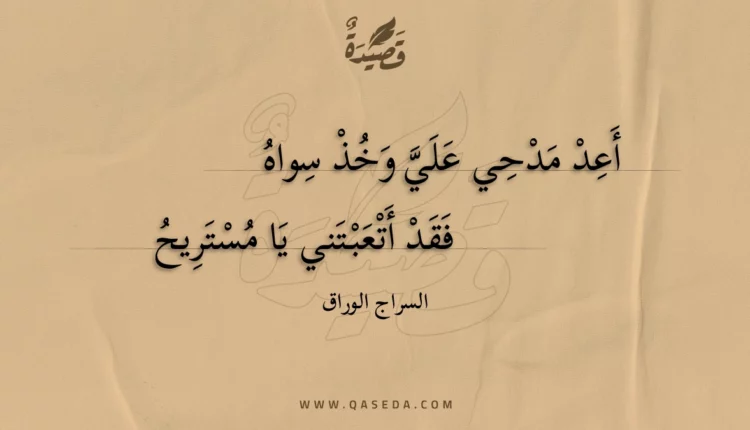 قَصِيدَةٌ
أَعِدْ مَدْحِي عَلَيَّ وَخُذْ سِواهُ
فَقَدْ أَتْعَبْتَني يَا مُسْتَرِيحُ
السراج الوراق
WWW.QASEDA.COM